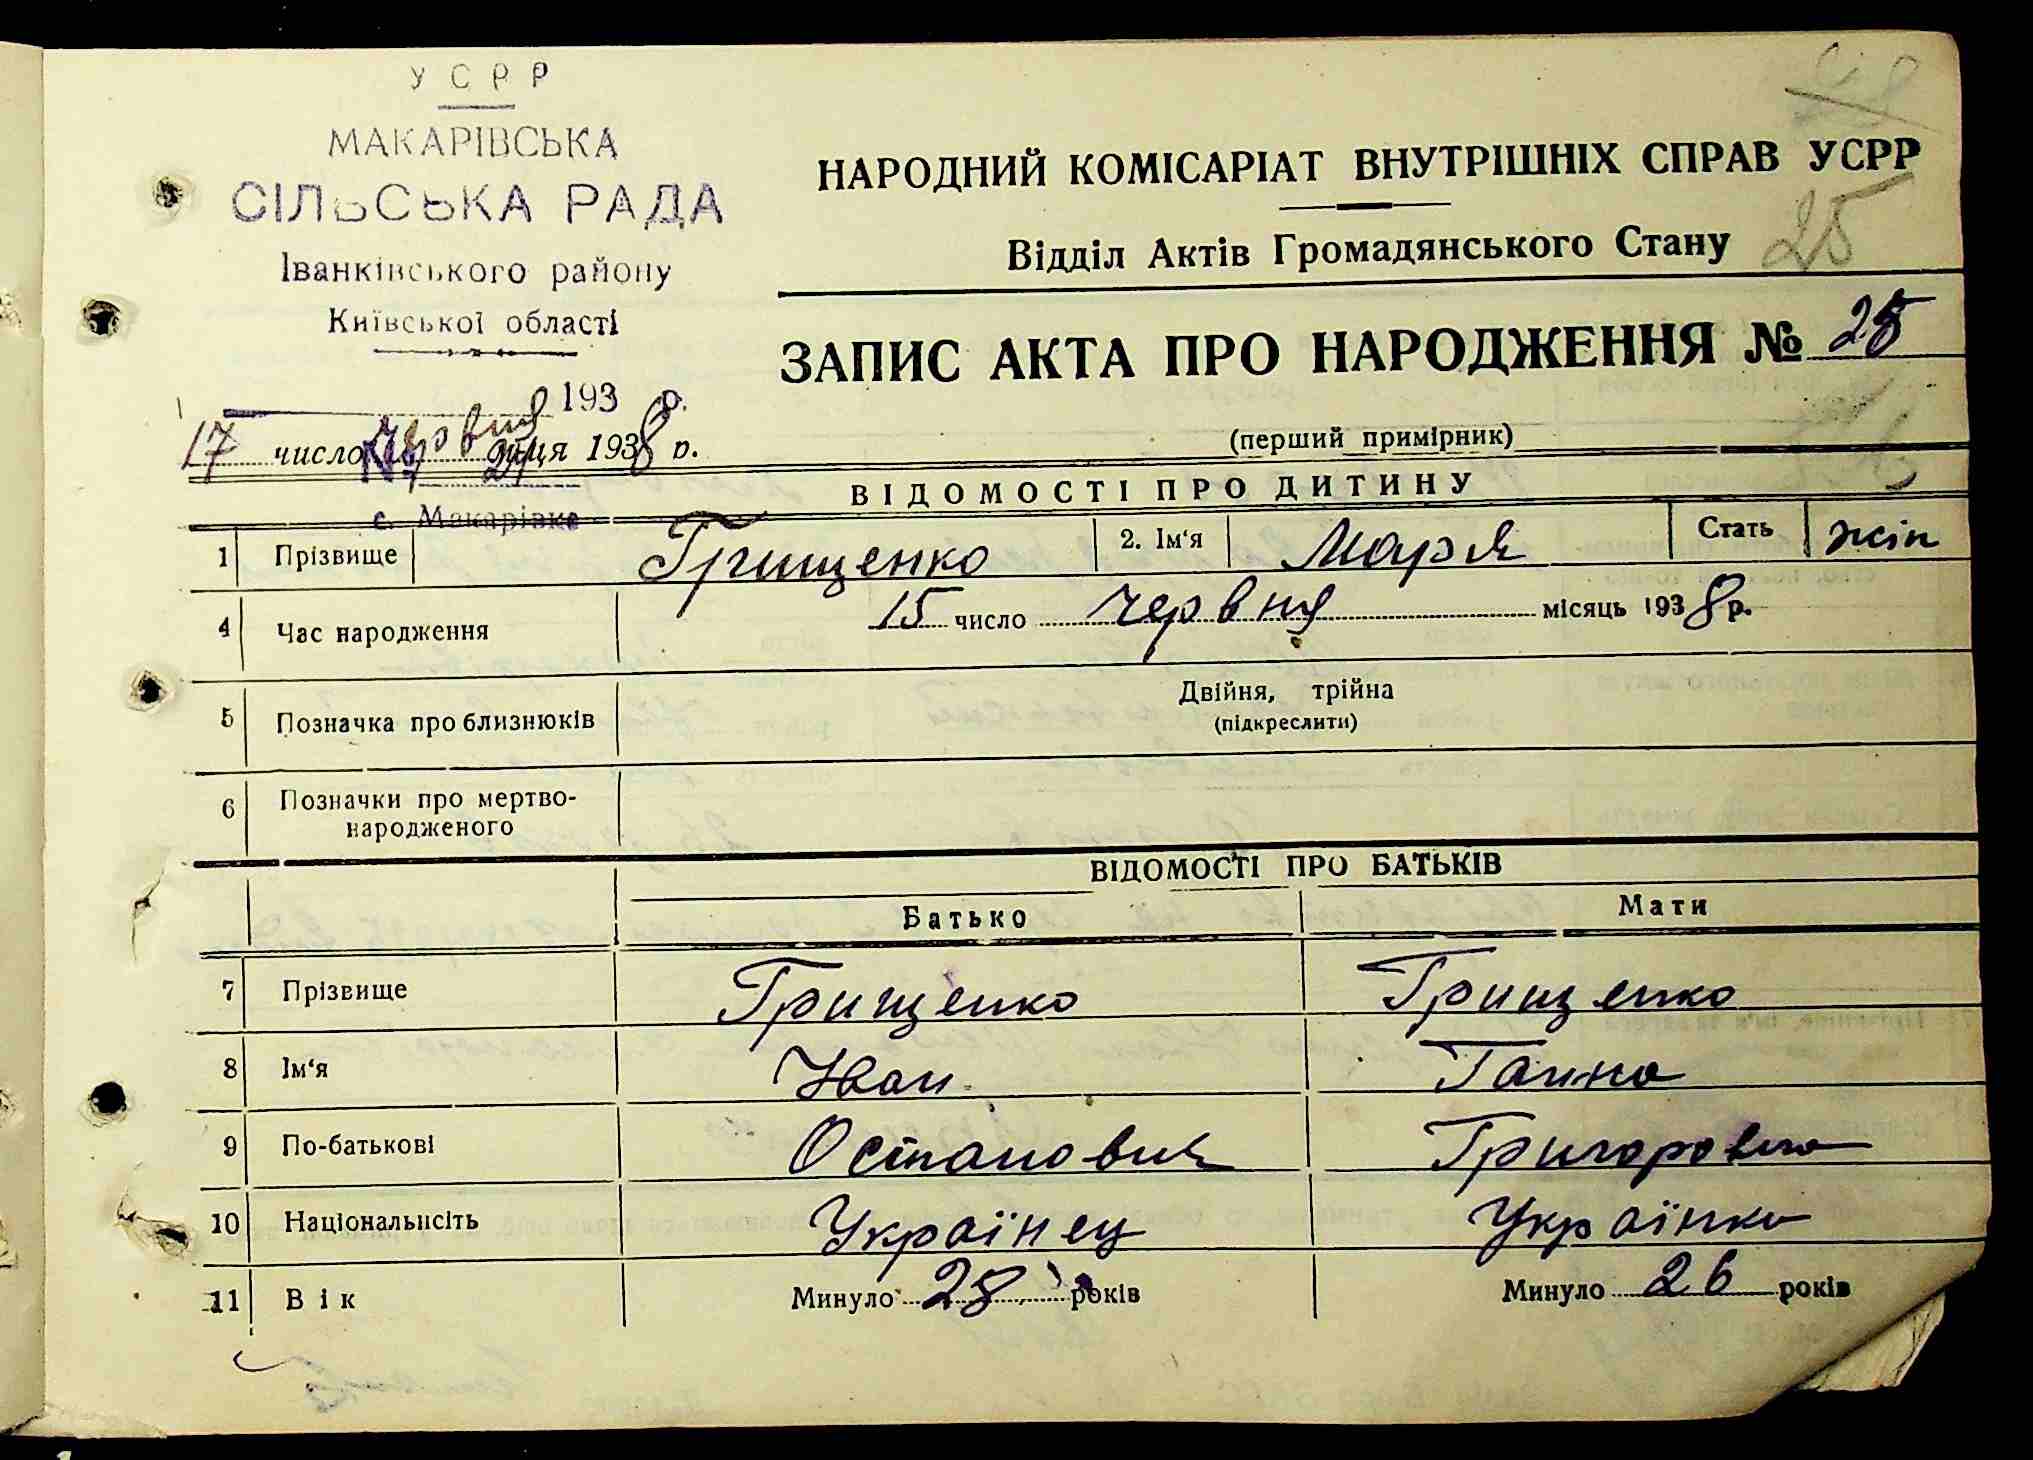 УСРР
МАКАРІВСЬКА
СІЛЬСЬКА РАДА
Іванківського району
Київської області
193 р.
17 число червня місяця 1938 р.
№
с. Макарівка
НАРОДНИЙ КОМІСАРІАТ ВНУТРІШНІХ СПРАВ УСРР
25
Відділ Актів Громадянського Стану
ЗАПИС АКТА ПРО НАРОДЖЕННЯ № 25
(перший примірник)
ВІДОМОСТІ ПРО ДИТИНУ
1 Прізвище Грищенко 2. Ім‘я Марія Стать жін
4 Час народження 15 число червня місяць 1938 р.
5 Позначка про близнюків Двійня, трійна
(підкреслити)
6 Позначки про мертво-
народженого
ВІДОМОСТІ ПРО БАТЬКІВ
Батько Мати
7 Прізвище Грищенко Грищенко
8 Ім‘я Иван Ганна
9 По-батькові Остапович Григоровна
10 Національність Українец Українка
11 Вік Минуло 28 років Минуло 26 років